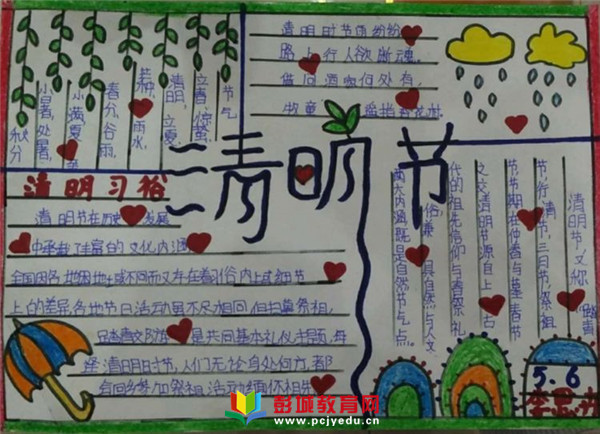 节气
立春、惊蛰、
清明、立夏、
芒种、雨水、
春分、谷雨、
小满、夏
小暑、处暑、
秋分
清明时节雨纷纷
路上行人欲断魂,
借问酒家何处有,
牧童
清明节
清明习俗
清明节在历史 发展
中承载了丰富的文化内涵
全国因各地因地域不同而又存在着习俗内上或细节
上的差异各地节日活动虽不尽相同但扫墓祭祖、
踏青郊游 是共同基本礼仪主题,每
逢清明时节,人们无论身处何方,都
会回乡参加祭祖活动缅怀祖先
清明节,又称 踏青
节,行清节,三月节,祭祖
节节期在仲春与暮春
之交清明节源自上古
代的祖先信仰与春祭礼
俗兼 具自然与人文
两大内涵既是自然节气点,
5.6
彭城教育网
www.pcjyedu.cn